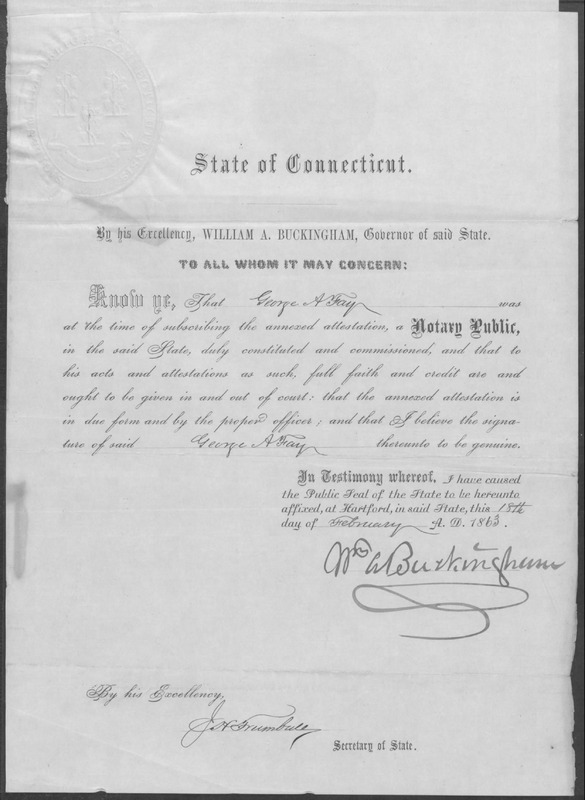 State of Connecticut.
By his Excellency, WILLIAM A. BUCKINGHAM, Governor of said State.
TO ALL WHOM IT MAY CONCERN:
Know ye, That George A Fay was
at the time of subscribing the annexed attestation, a Notary Public,
in the said State, duly constituted and commissioned, and that to
his acts and attestations as such, full faith and credit are and
ought to be given in and out of court: that the annexed attestation is
in due form and by the proper officer; and that I believe the signa-
ture of said George A Fay thereunto to be genuine.
In Testimony whereof, I have caused
the Public Seal of the State to be hereunto
affixed, at Hartford, in said State, this 18th
day of February A. D. 1863.
Wm A Buckingham
By his Excellency,
J H Trumbull
Secretary of State.